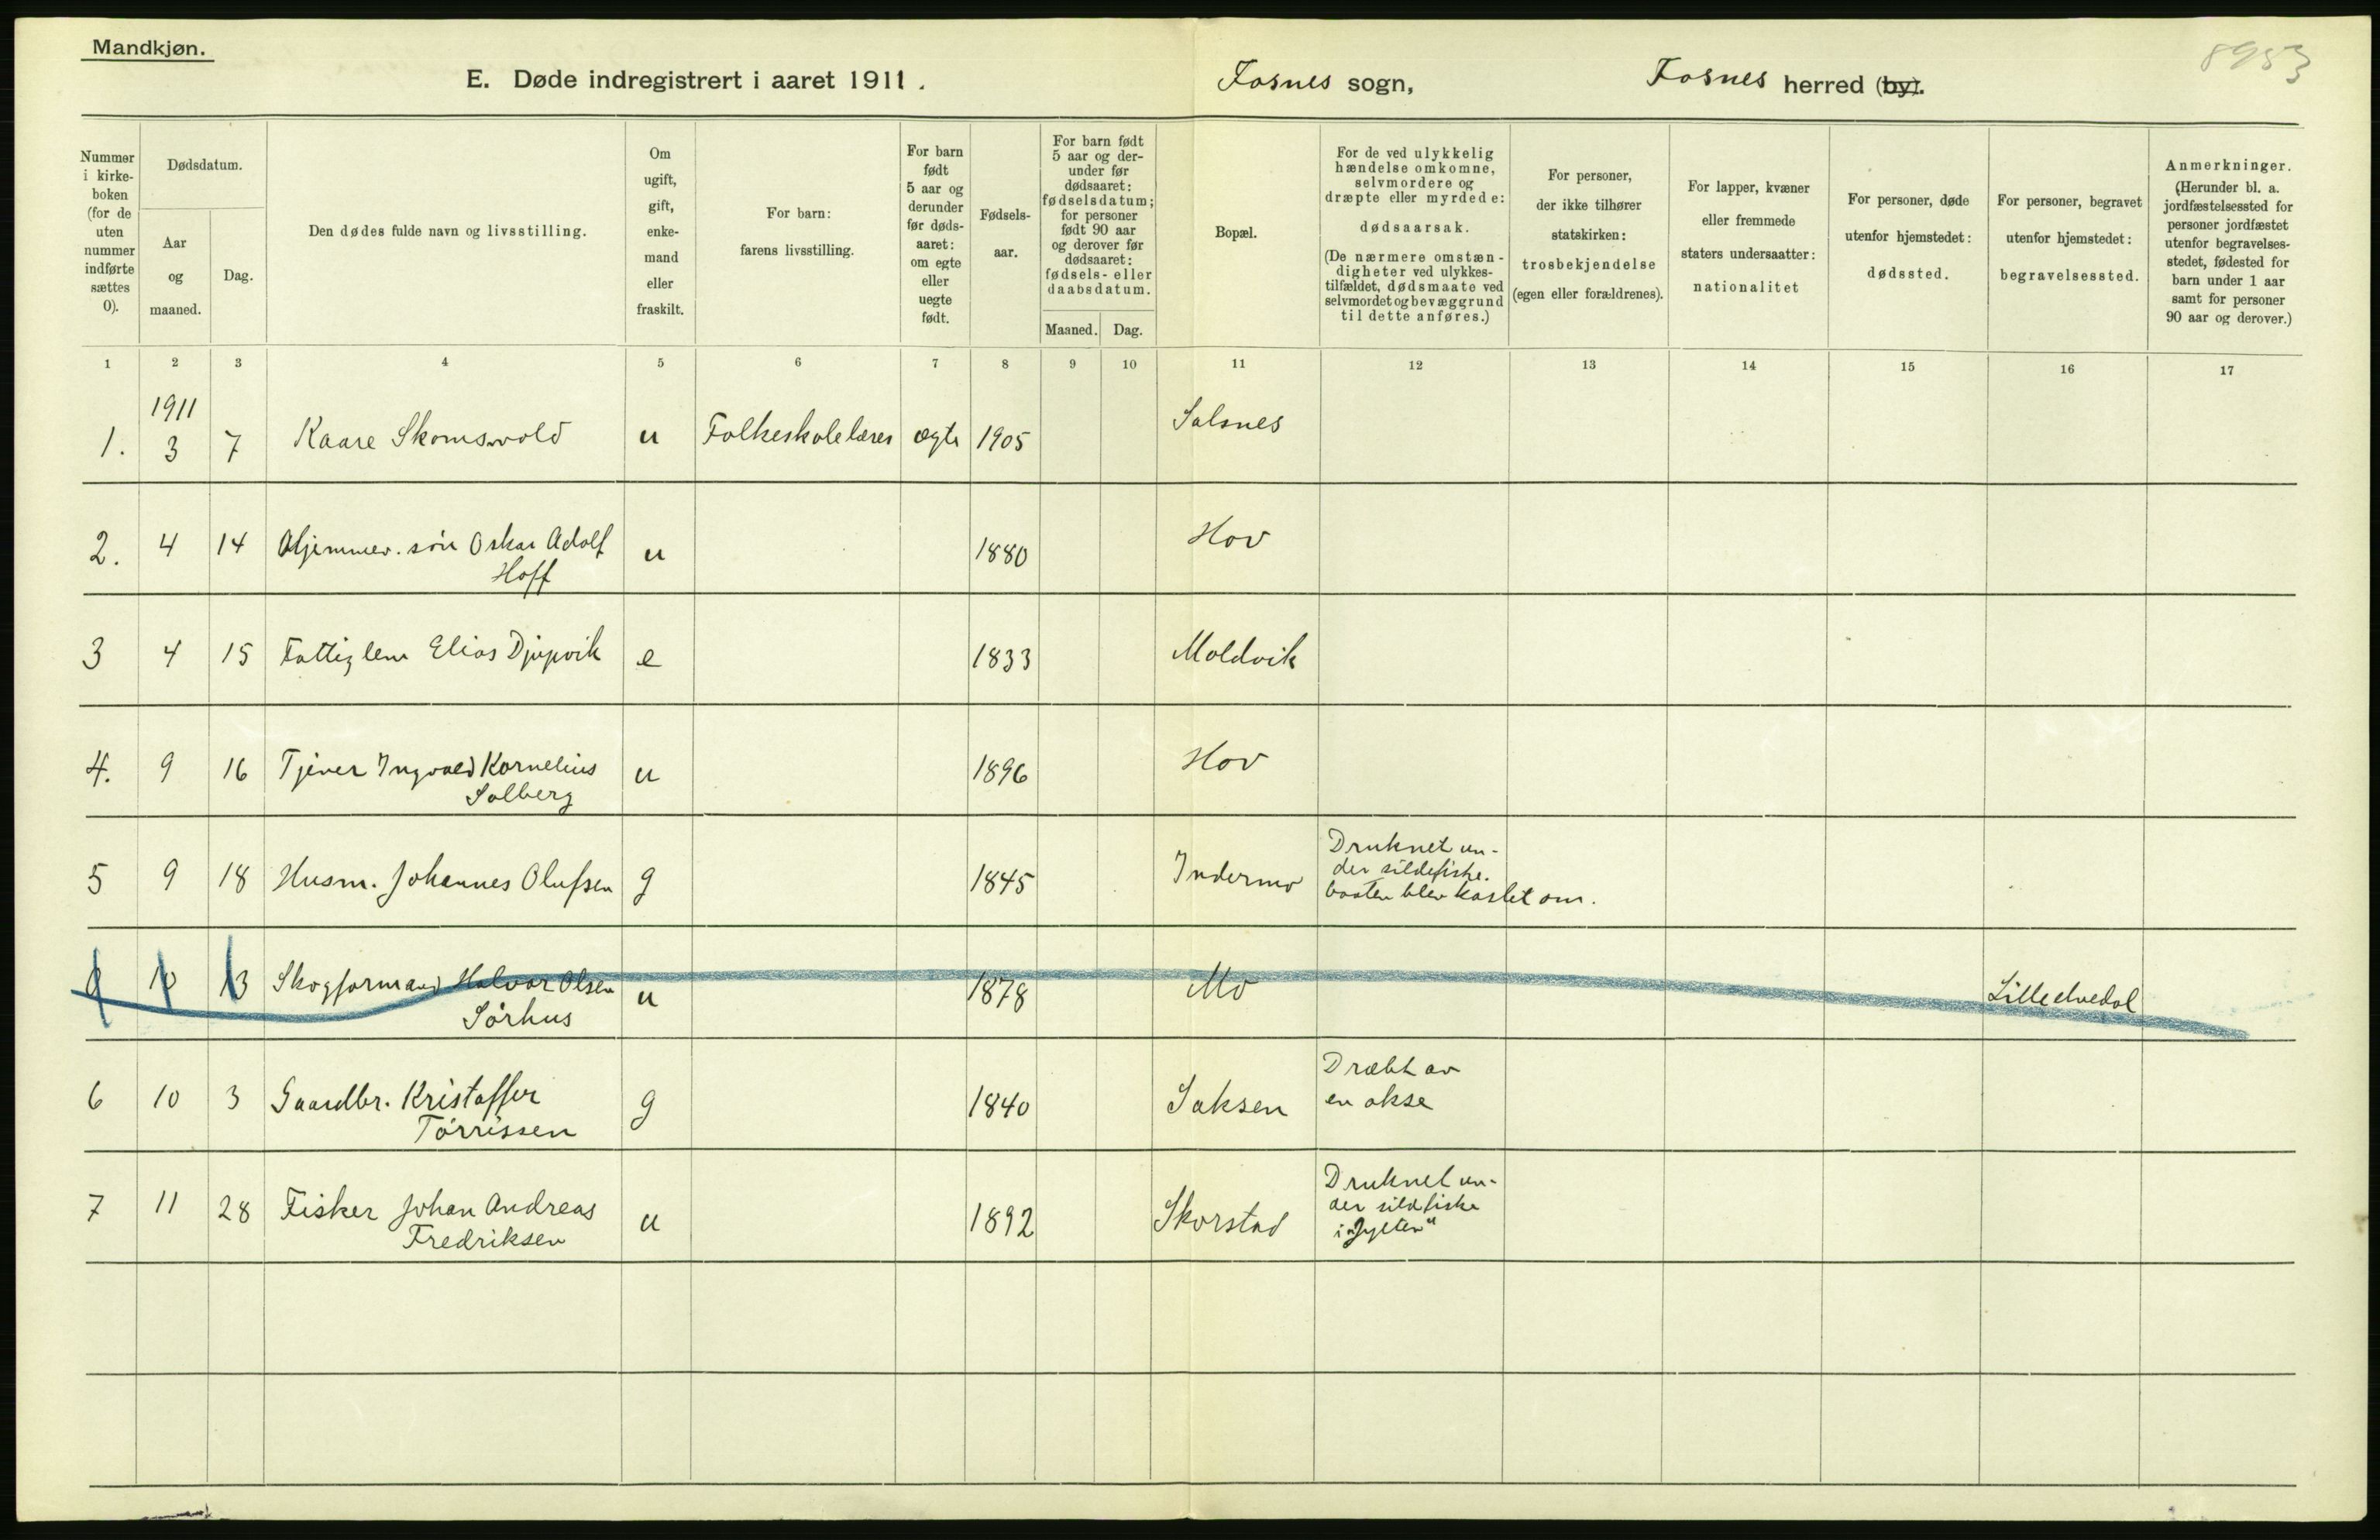 Mandkjøn.
8953
E. Døde indregistrert i aaret 1911. Fosnes sogn, Fosnes herred (by).
Nummer i kirke-boken (for de uten nummer indførte sættes 0).
Dødsdatum.
Aar og maaned.
Dag.
Den dødes fulde navn og livsstilling.
Om ugift, gift, enke-mand eller fraskilt.
For barn: farens livsstilling.
For barn født 5 aar og derunder før døds-aaret: om egte eller uegte født.
Fødsels-aar.
For barn født 5 aar og der-under før dødsaaret: fødselsdatum; for personer født 90 aar og derover før dødsaaret: fødsels- eller daabsdatum.
Maaned. Dag.
Bopæl.
For de ved ulykkelig hændelse omkomne, selvmordere og dræpte eller myrdede: dødsaarsak.
(De nærmere omstæn-digheter ved ulykkes-tilfældet, dødsmaate ved selvmordet og bevæggrund til dette anføres.)
For personer, der ikke tilhører statskirken: trosbekjendelse (egen eller forældrenes).
For lapper, kvæner eller fremmede staters undersaatter: nationalitet
For personer, døde utenfor hjemstedet: dødssted.
For personer, begravet utenfor hjemstedet: begravelsessted.
Anmerkninger. (Herunder bl. a. jordfæstelsessted for personer jordfæstet utenfor begravelses-stedet, fødested for barn under 1 aar samt for personer 90 aar og derover.)
1 2 3 4 5 6 7 8 9 10 11 12 13 14 15 16 17
1911
1. 3 7 Kaare Skomsvold u Folkeskolelærer ægte 1905 Salsnes
2. 4 14 Hjemmev. søn Oskar Adolf u 1880 Hov
Hoff
3 4 15 Fattiglem Elias Djupvik e 1833 Moldvik
4. 9 16 Tjener Ingvald Kornelius u 1896 Hov
Solberg
5 9 18 Husm. Johannes Olufsen g 1845 Indermo Druknet un-
der sildefiske.
baaten blev kastet om.
10 13 Skogformand Halvor Olsen u 1878 Mo Lilleelvedal
Sørhus
6 10 3 Gaardbr. Kristoffer g 1840 Saksen Dræbt av
Tørrissen en okse
7 11 28 Fisker Johan Andreas u 1892 Skorstad Druknet un-
Fredriksen der sildfiske
i